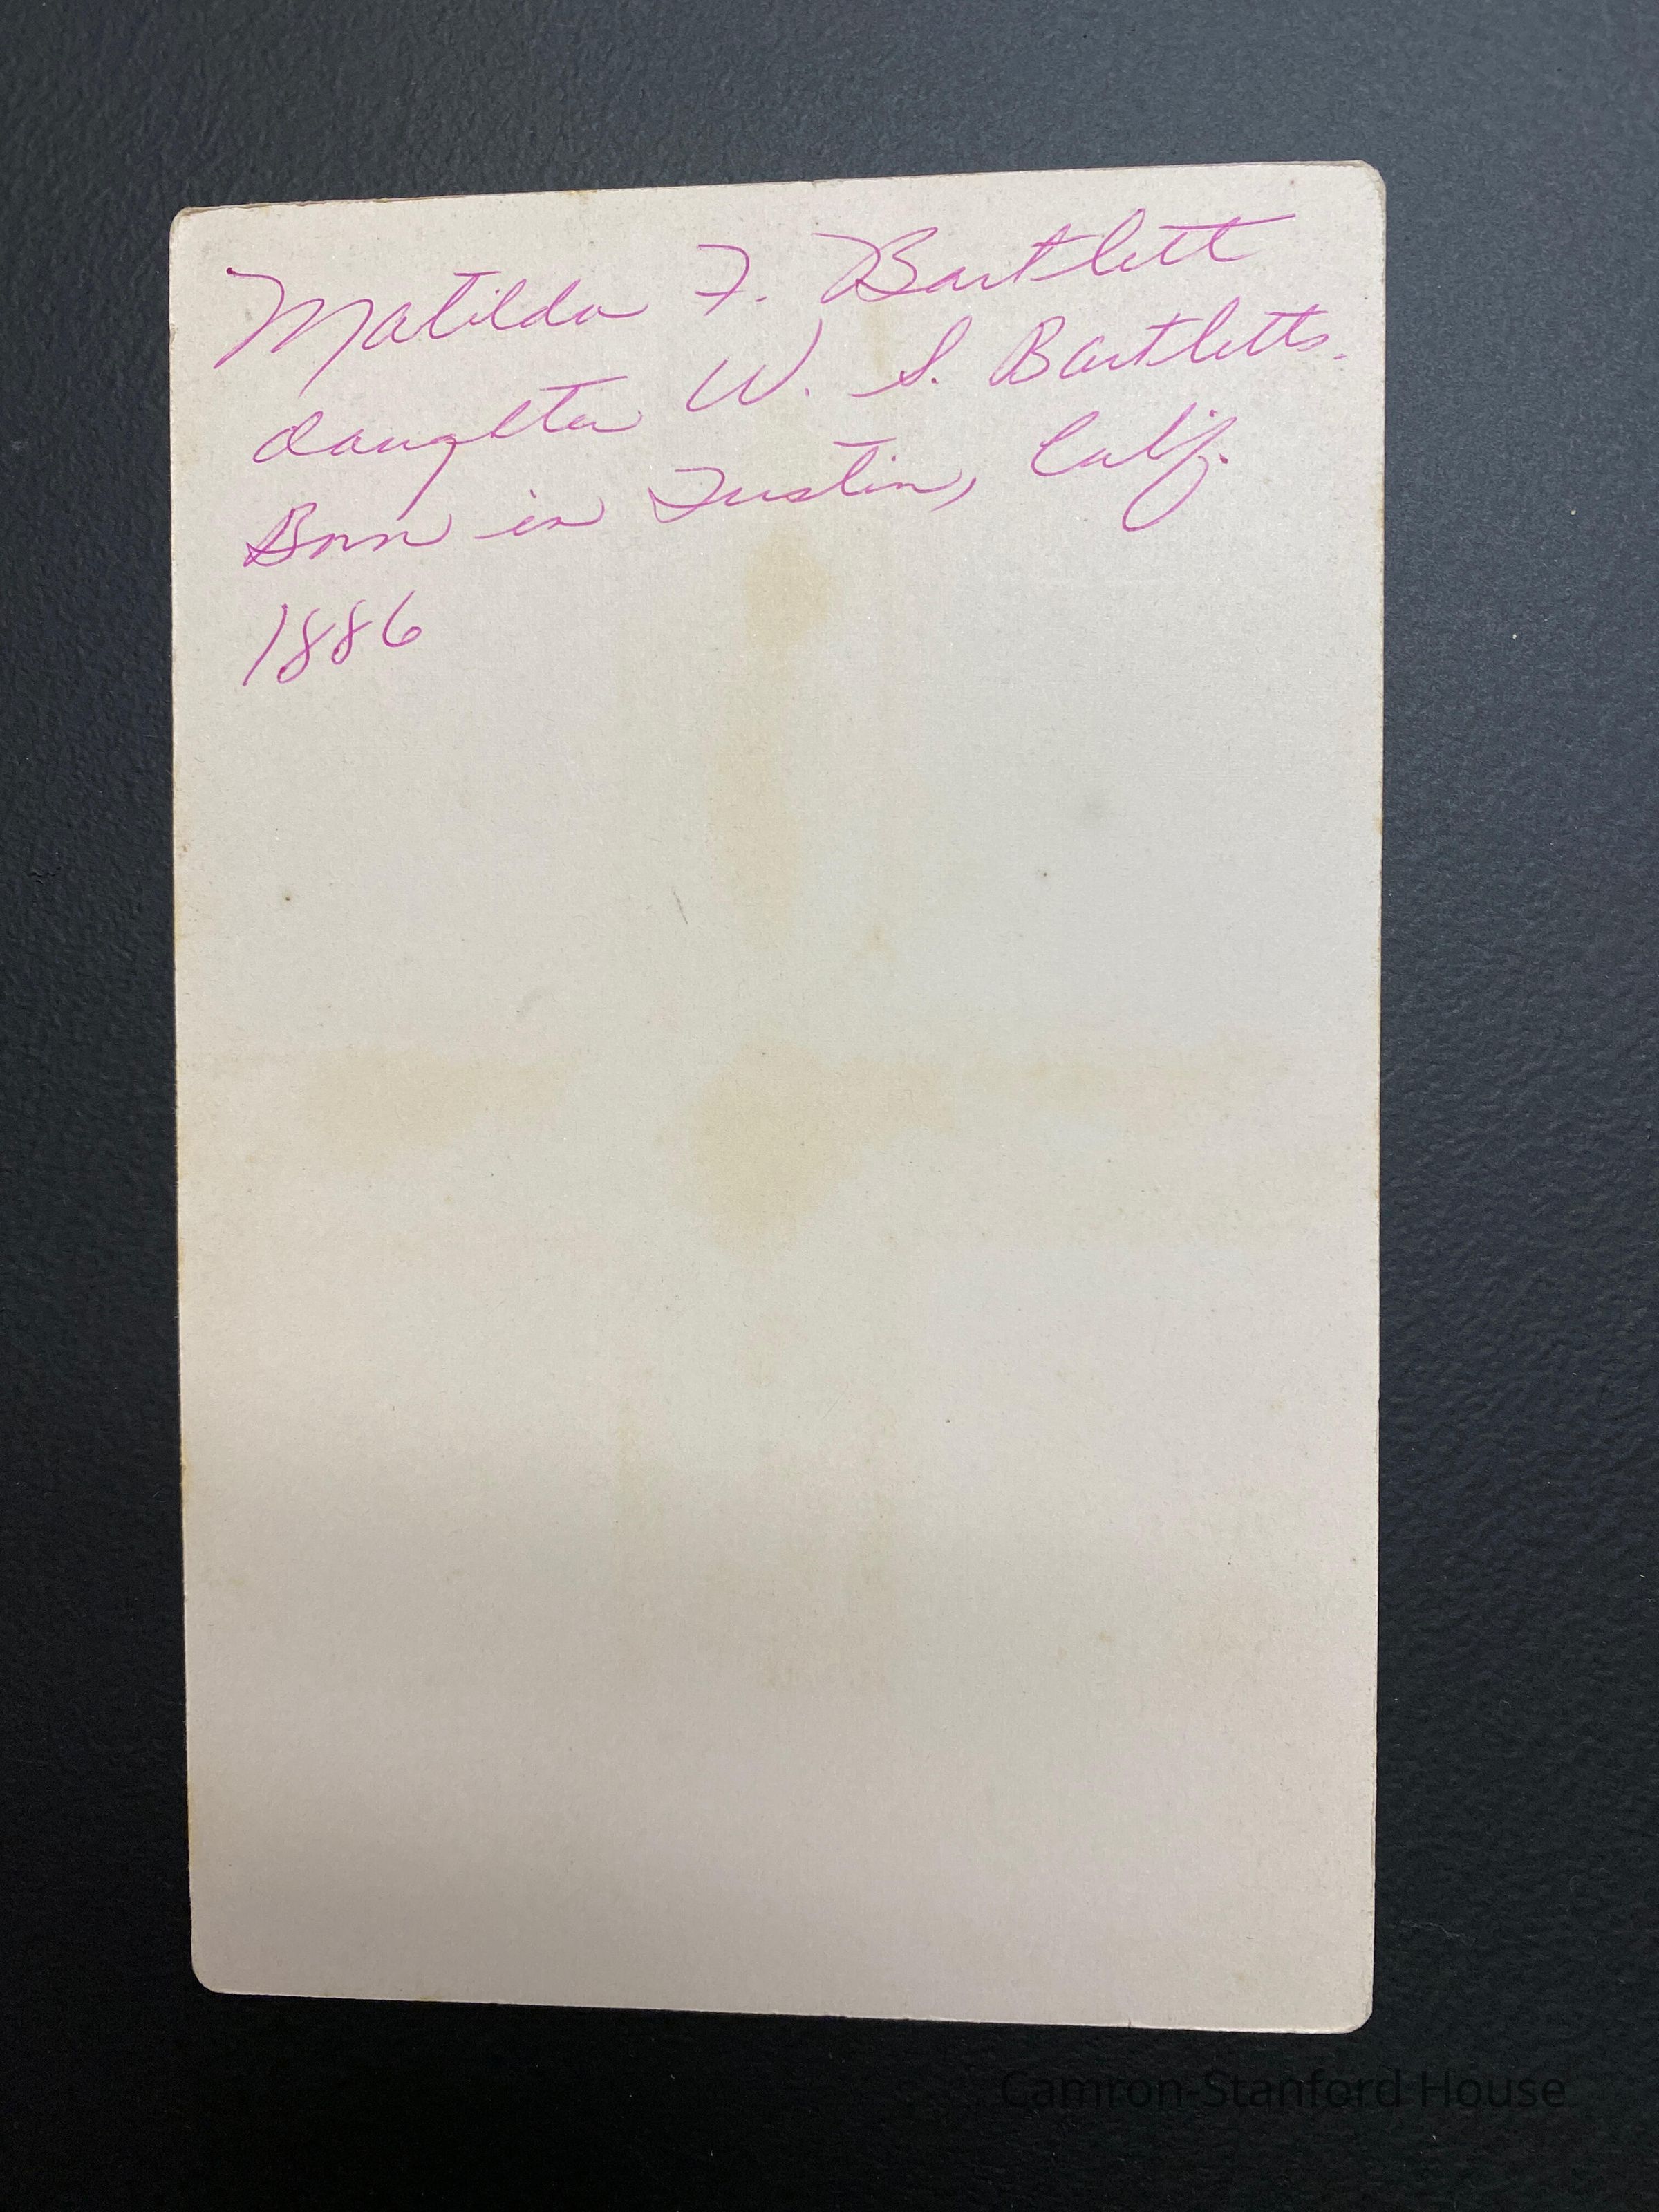 Matilda F. Bartlett
daughter W. S. Bartletts.
Born in Tustin, Calif.
1886
Camron-Stanford House